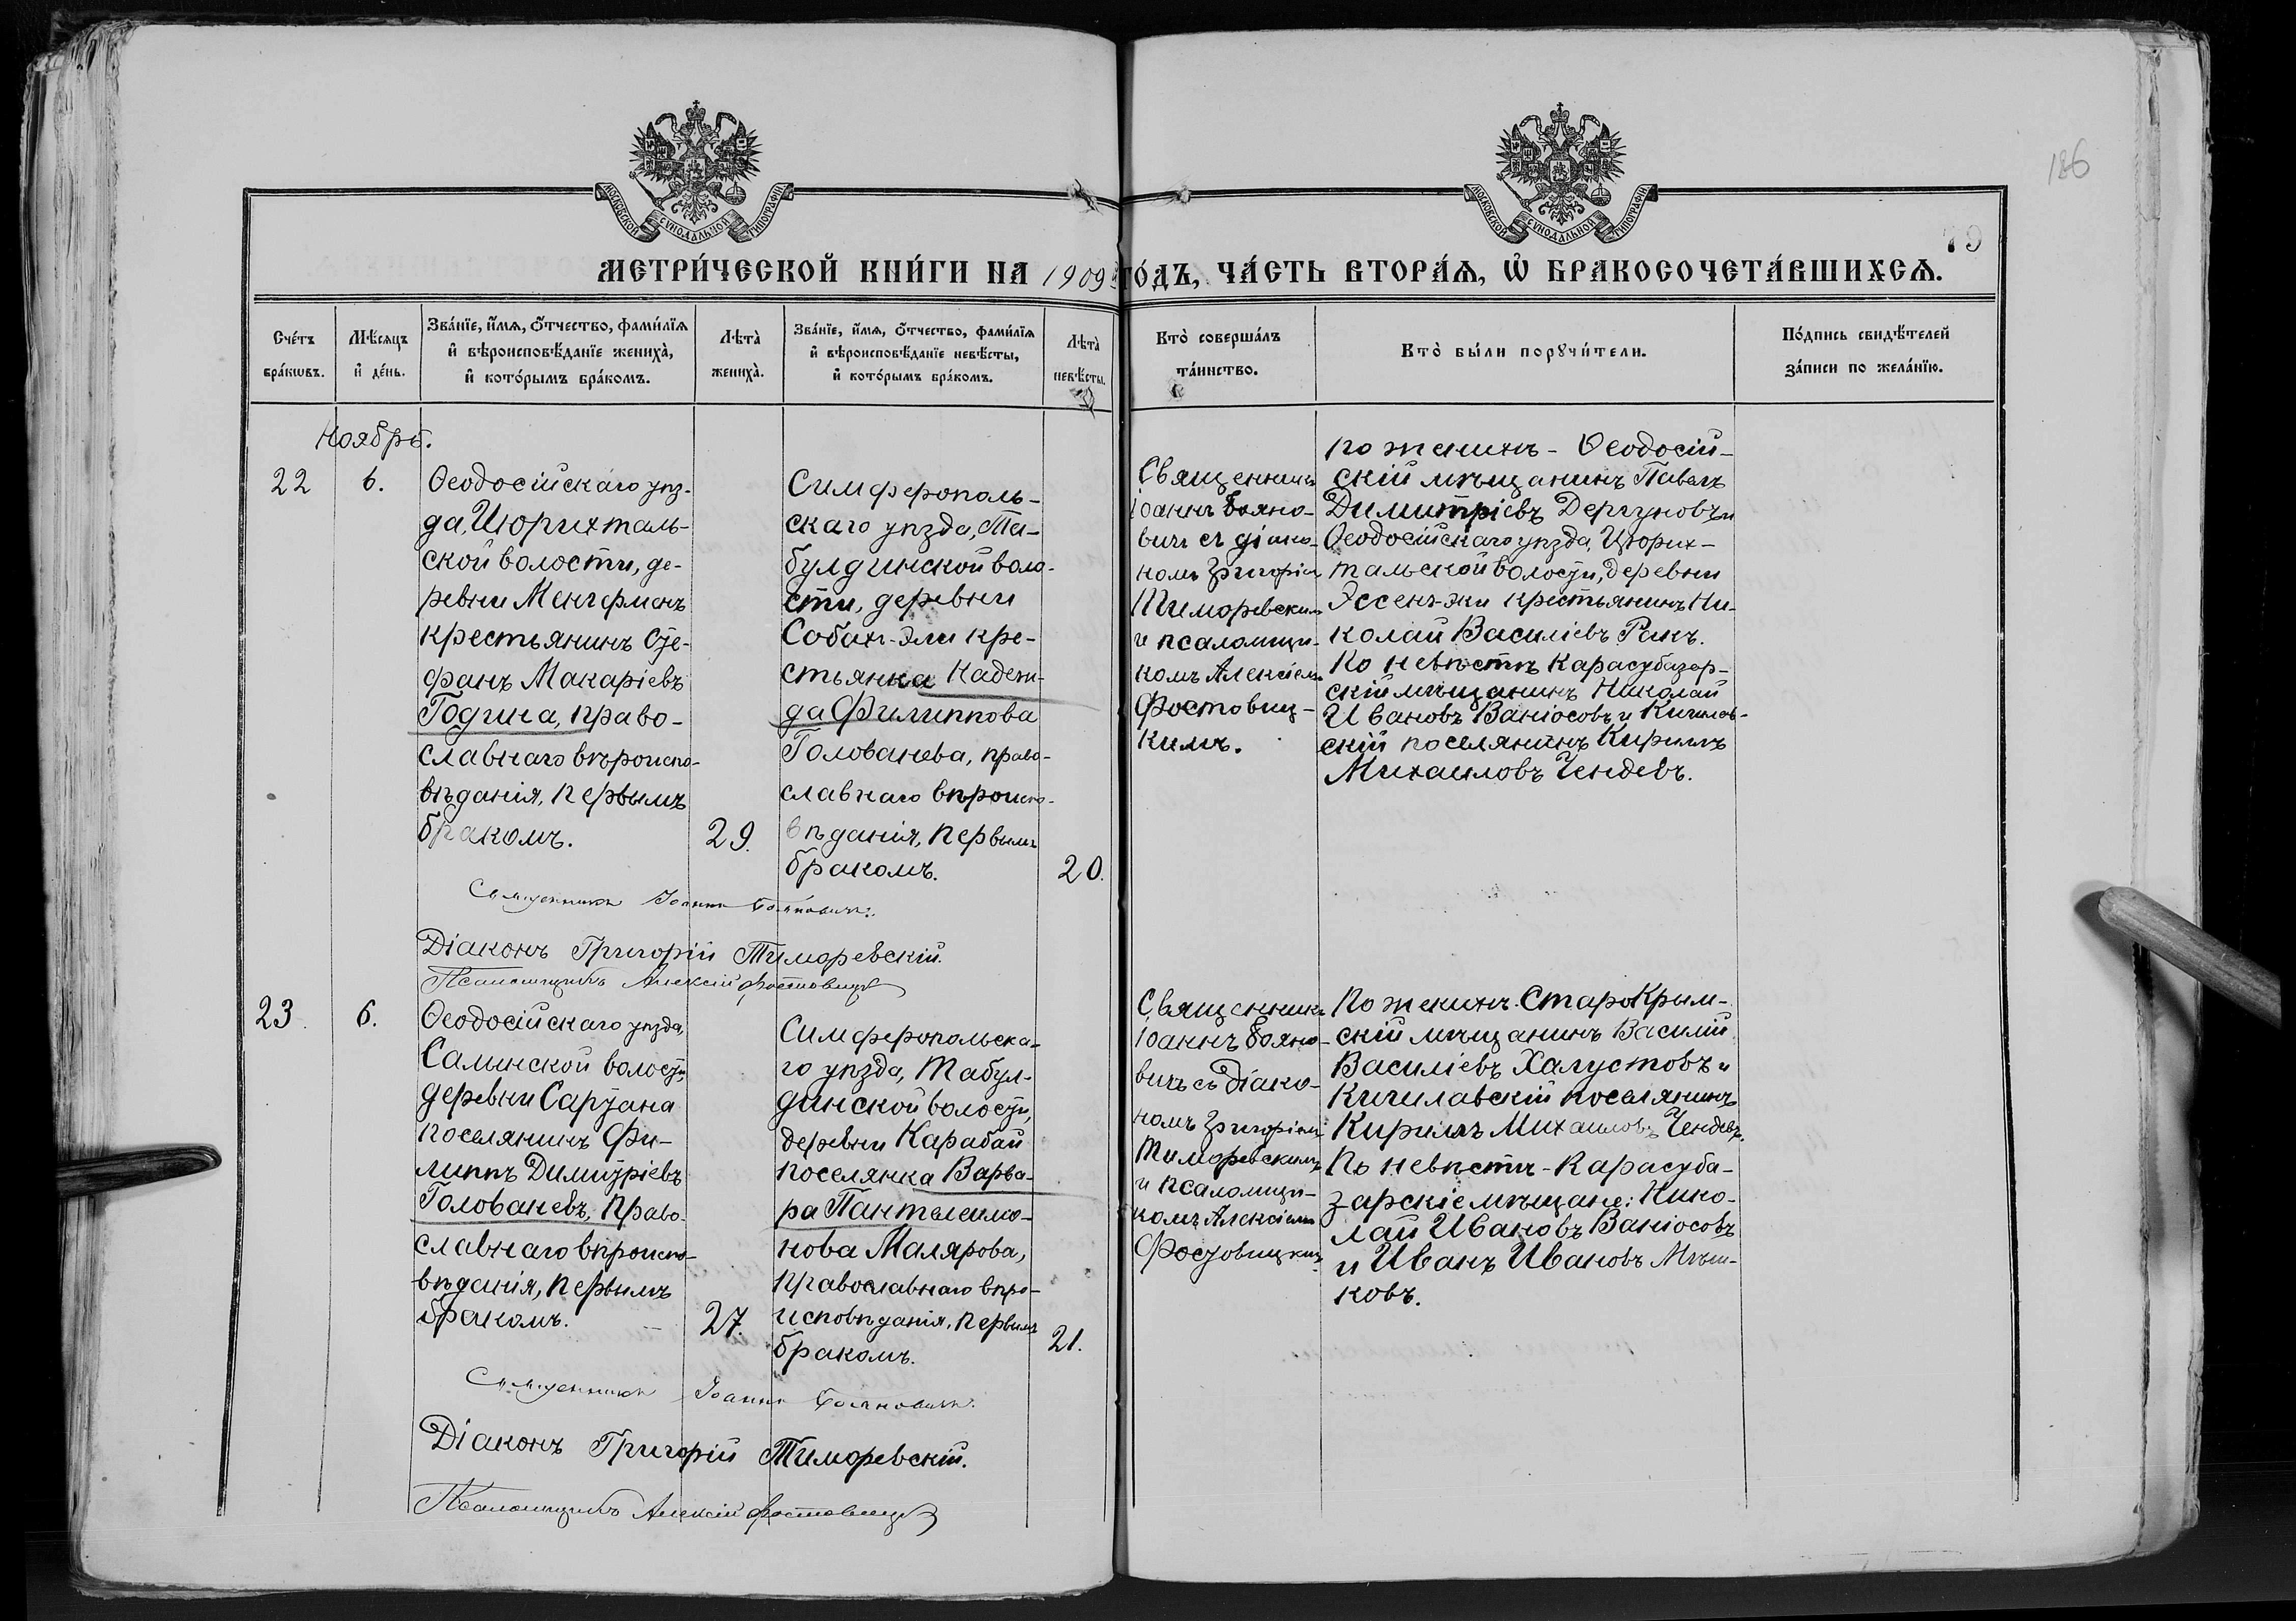 186
79
МОСКОВСКОЙ СѴНОДАЛЬНОЙ ТИПОГРАФІИ
МОСКОВСКОЙ СѴНОДАЛЬНОЙ ТИПОГРАФІИ
МЕТРИ́ЧЕСКОЙ КНИ́ГИ НА 1909й ГО́ДЪ, ЧА́СТЬ ВТОРА́Ѧ, Ѽ БРАКОСОЧЕТА́ВШИХСѦ.
Сче́тъ
бра́кѡвъ.
Мѣ́сяцъ
и҆ де́нь.
Зва́нїе, и҆́мѧ, ѻ҆́тчество, фами́лїѧ
и҆ вѣроисповѣ́данїе жениха̀,
и҆ кото́рымъ бра́комъ.
Лѣта̀
жениха̀.
Зва́нїе, и҆́мѧ, ѻ҆́тчество, фами́лїѧ
и҆ вѣроисповѣ́данїе невѣ́сты,
и҆ кото́рымъ бра́комъ.
Лѣта̀
невѣ́сты.
Кто̀ соверша́лъ
та́инство.
Кто̀ бы́ли порꙋчи́тели.
По́дпись свидѣ́телей
за́писи по жела́нїю.
Ноябрь.
22
6.
Ѳеодосійскаго уѣз-
да, Цюрихталь-
ской волости, де-
ревни Менгерменъ
крестьянинъ Сте-
фанъ Макаріевъ
Година, право-
славнаго вѣроиспо-
вѣданія, первымъ
бракомъ.
29.
Симферополь-
скаго уѣзда, Та-
булдинской воло-
сти, деревни
Собахъ-Эли кре-
стьянка Надеж-
да Филиппова
Голованева, право-
славнаго вѣроиспо-
вѣданія, первымъ
бракомъ.
20.
Священникъ
Іоаннъ Бояно-
вичъ съ діако-
номъ Григоріем
Тиморевским
и псаломщи-
комъ Алексіем
Фостовиц-
кимъ.
По женихѣ - Ѳеодосій-
скій мѣщанинъ Павелъ
Димитріевъ Дергуновъ и
Ѳеодосійскаго уѣзда, Цюрих-
тальской волости, деревни
Эссенъ-эки крестьянинъ Ни-
колай Василіевъ Ракъ.
По невѣстѣ Карасубазар-
скій мѣщанинъ Николай
Ивановъ Ваніосовъ и Кишлав-
скій поселянинъ Кириллъ
Михаиловъ Чендевъ.
Священникъ Іоаннъ Бояновичъ.
Діаконъ Григорій Тиморевскій.
Псаломщикъ Алексій Фостовицкій
23.
6.
Ѳеодосійскаго уѣзда,
Салынской волости,
деревни Сартана
поселянинъ Фи-
липпъ Димитріевъ
Голованевъ, право-
славнаго вѣроиспо-
вѣданія, первымъ
бракомъ.
27.
Симферопольска-
го уѣзда, Табул-
динской волости,
деревни Карабай
поселянка Варва-
ра Пантелеимо-
нова Малярова,
православнаго вѣро-
исповѣданія, первымъ
бракомъ.
21.
Священникъ
Іоаннъ Бояно-
вичъ съ діако-
номъ Григоріем
Тиморевскимъ
и псаломщи-
комъ Алексіем
Фостовицким
По женихѣ Старокрым-
скій мѣщанинъ Василій
Василіевъ Халустовъ и
Кишлавскій поселянинъ
Кириллъ Михаиловъ Чендевъ.
По невѣстѣ - Карасуба-
зарскіе мѣщане: Нико-
лай Ивановъ Ваніосовъ
и Иванъ Ивановъ Мѣш-
ковъ.
Священникъ Іоаннъ Бояновичъ.
Діаконъ Григорій Тиморевскій.
Псаломщикъ Алексій Фостовицкій